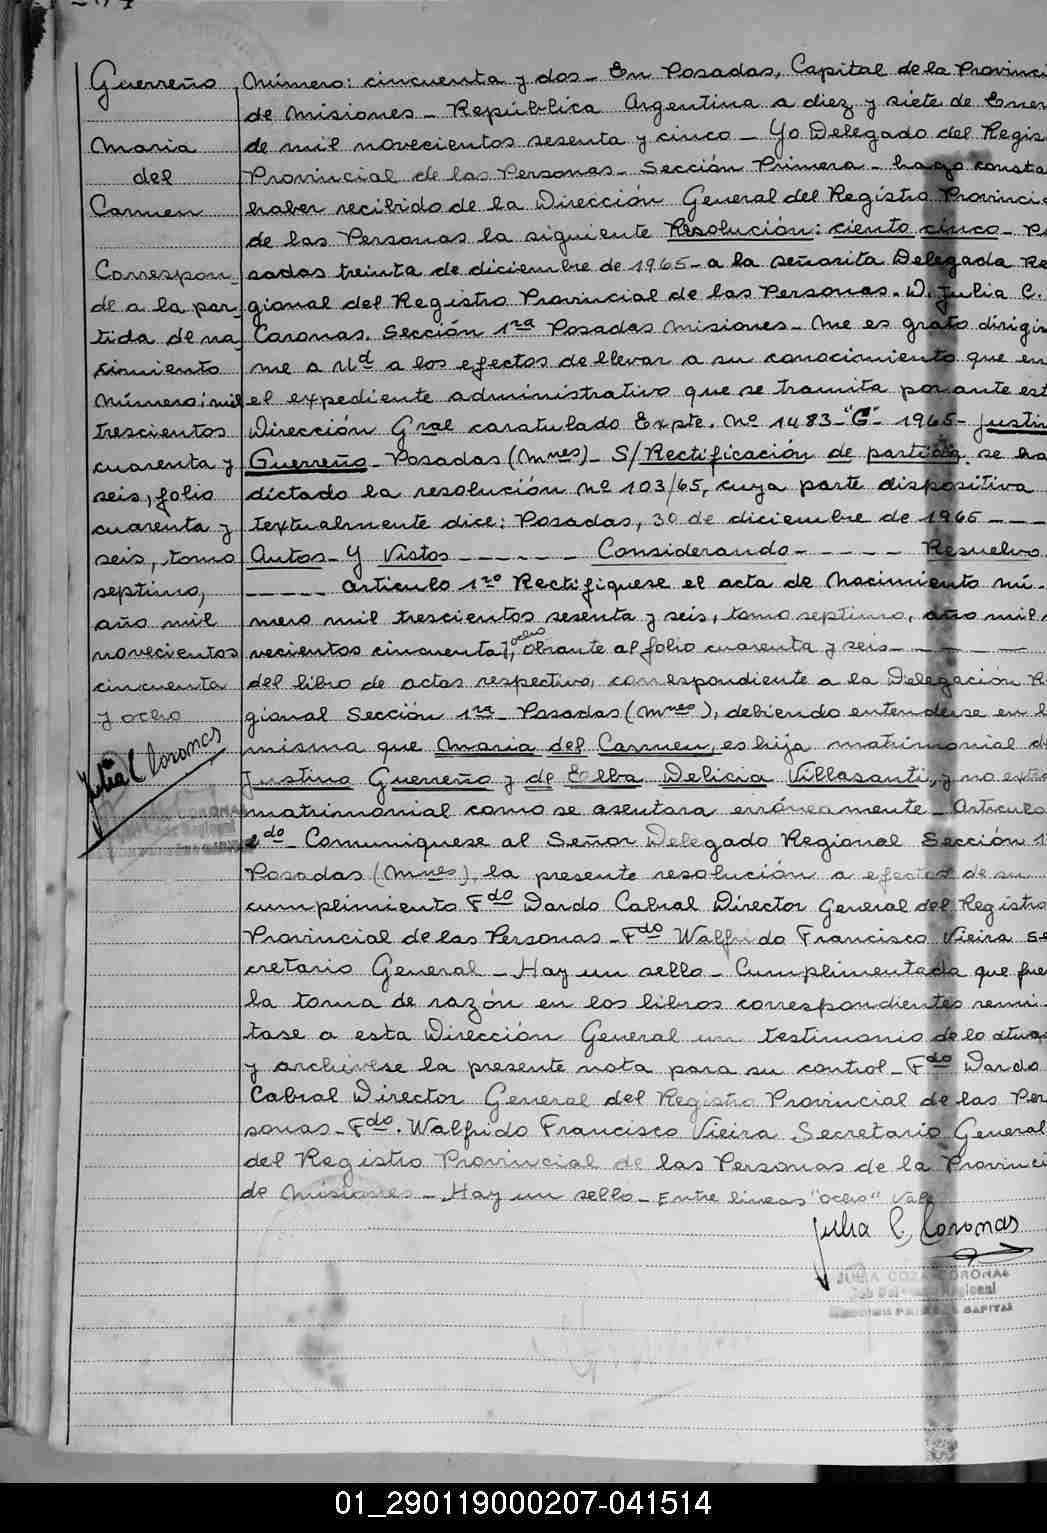 Guerreño
Maria
del
Carmen
Correspon-
de a la par-
tida de na-
cimiento
número: mil
trescientos
cuarenta y
seis, folio
cuarenta y
seis, tomo
septimo,
año mil
novecientos
cincuenta
y ocho
Julia C. Coronas
Número: cincuenta y dos - En Posadas, Capital de la Provinci
de Misiones - República Argentina a diez y siete de Ener
de mil novecientos sesenta y cinco - Yo Delegado del Regis
Provincial de las Personas - Sección Primera - hago consta
haber recibido de la Dirección General del Registro Provinci
de las Personas la siguiente Resolución: ciento cinco - Po
sadas treinta de diciembre de 1965 - a la señorita Delegada Re
gional del Registro Provincial de las Personas. D. Julia C.
Coronas. Sección 1ra Posadas Misiones - Me es grato dirigir
me a Ud a los efectos de llevar a su conocimiento que en
el expediente administrativo que se tramita por ante est
Dirección Gral caratulado Expte. Nº 1483 - "G" - 1965 - Justin
Guerreño - Posadas (Mnes) - S/ Rectificación de partida. se ha
dictado la resolución nº 103/65, cuya parte dispositiva
textualmente dice: Posadas, 30 de diciembre de 1965 - - -
Autos - Y Vistos - - - - - Considerando - - - - - Resuelvo
- - - - - Articulo 1ro Rectifiquese el acta de Nacimiento nú-
mero mil trescientos sesenta y seis, tomo septimo, año mil
vecientos cincuenta y ocho, obrante al folio cuarenta y seis - - -
del libro de actas respectivo, correspondiente a la Delegación R
gional Sección 1ra - Posadas (Mnes), debiendo entenderse en l
misma que Maria del Carmen, es hija matrimonial d
Justino Guerreño y de Elba Delicia Villasanti, y no extra
matrimonial como se asentara erróneamente - Articulo
2do - Comuniquese al Señor Delegado Regional Sección 1
Posadas (Mnes), la presente resolución a efectos de su
cumplimiento Fdo Dardo Cabral Director General del Registro
Provincial de las Personas - Fdo Walfrido Francisco Vieira Se
cretario General - Hay un sello - Cumplimentada que fue
la toma de razón en los libros correspondientes remi-
tase a esta Dirección General un testimonio de lo atua
y archivese la presente nota para su control - Fdo Dardo
Cabral Director General del Registro Provincial de las Per
sonas - Fdo. Walfrido Francisco Vieira Secretario General
del Registro Provincial de las Personas de la Provinci
de Misiones - Hay un sello - Entre lineas "ocho" Vale
Julia C. Coronas
JULIA COZA CORONAS
Regional
CAPITAL
01_290119000207-041514